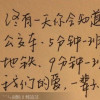 没有一天你会知道
公交车.5分钟一班
地铁.9分钟一班
我们的爱.一辈